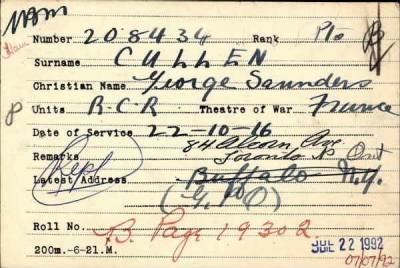 Number 208434 Rank Pte B
Surname CULLEN
Christian Name George Saunders
Units R.C.R Theatre of War France
Date of Service 22-10-16
84 Alcorn Ave
Remarks Toronto Ont
Desp
Latest Address Buffalo N.Y.
(G.P.O)
Roll No. B. Page 19302
200m.-6-21.M. JUL 22 1992
07/07/92